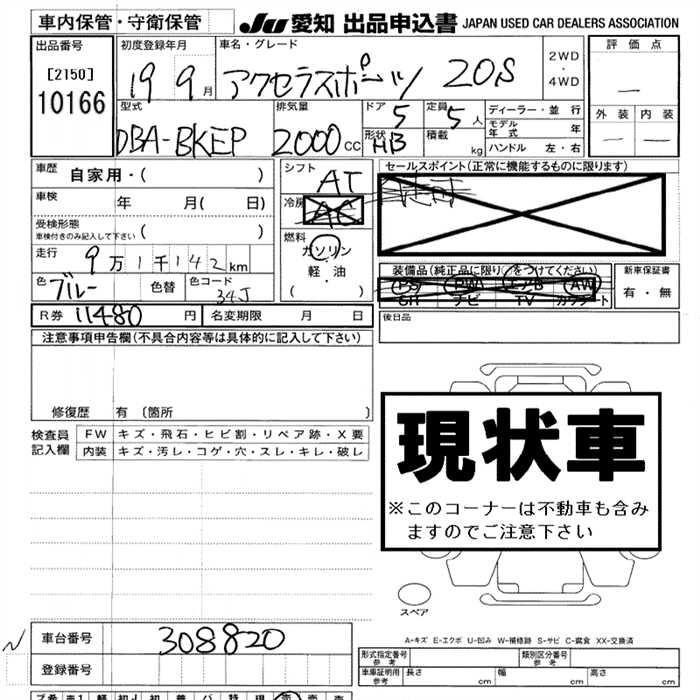 車内保管・守衛保管 JU 愛知 出品申込書 JAPAN USED CAR DEALERS ASSOCIATION
出品番号 初度登録年月 車名・グレード 評価点
[2150] 19 9月 アクセラスポーツ 20S 2WD・4WD —
10166 外装 内装
型式 排気量 ドア 5 定員 5人 ディーラー・並行
DBA-BKEP 2000cc 形状 HB 積載 kg モデル年式 年
ハンドル 左・右 — —
車歴 自家用・( ) シフト AT セールスポイント(正常に機能するものに限ります)
車検 年 月( 日) 冷房 AC
受検形態 車検付きのみ記入して下さい ( ) 燃料 ガソリン
走行 9万1千142km 軽・油
装備品(純正品に限り○をつけてください) 新車保証書
色 ブルー 色替 色コード 34J ( ) PS PW エアB AW 有・無
SR ナビ TV カワシート
R券 11480円 名変期限 月 日 後日品
注意事項申告欄(不具合内容等は具体的に記入して下さい)
修復歴 有〔箇所 〕
検査員記入欄 FW キズ・飛石・ヒビ割・リペア跡・X要
内装 キズ・汚レ・コゲ・穴・スレ・キレ・破レ
現状車
※このコーナーは不動車も含み
ますのでご注意下さい
スペア
A-キズ E-エクボ U-凹み W-補修跡 S-サビ C-腐食 XX-交換済
車台番号 308820
登録番号
形式指定番号 参考 類別区分番号 参考
車庫証明用 参考 長さ cm 幅 cm 高さ cm